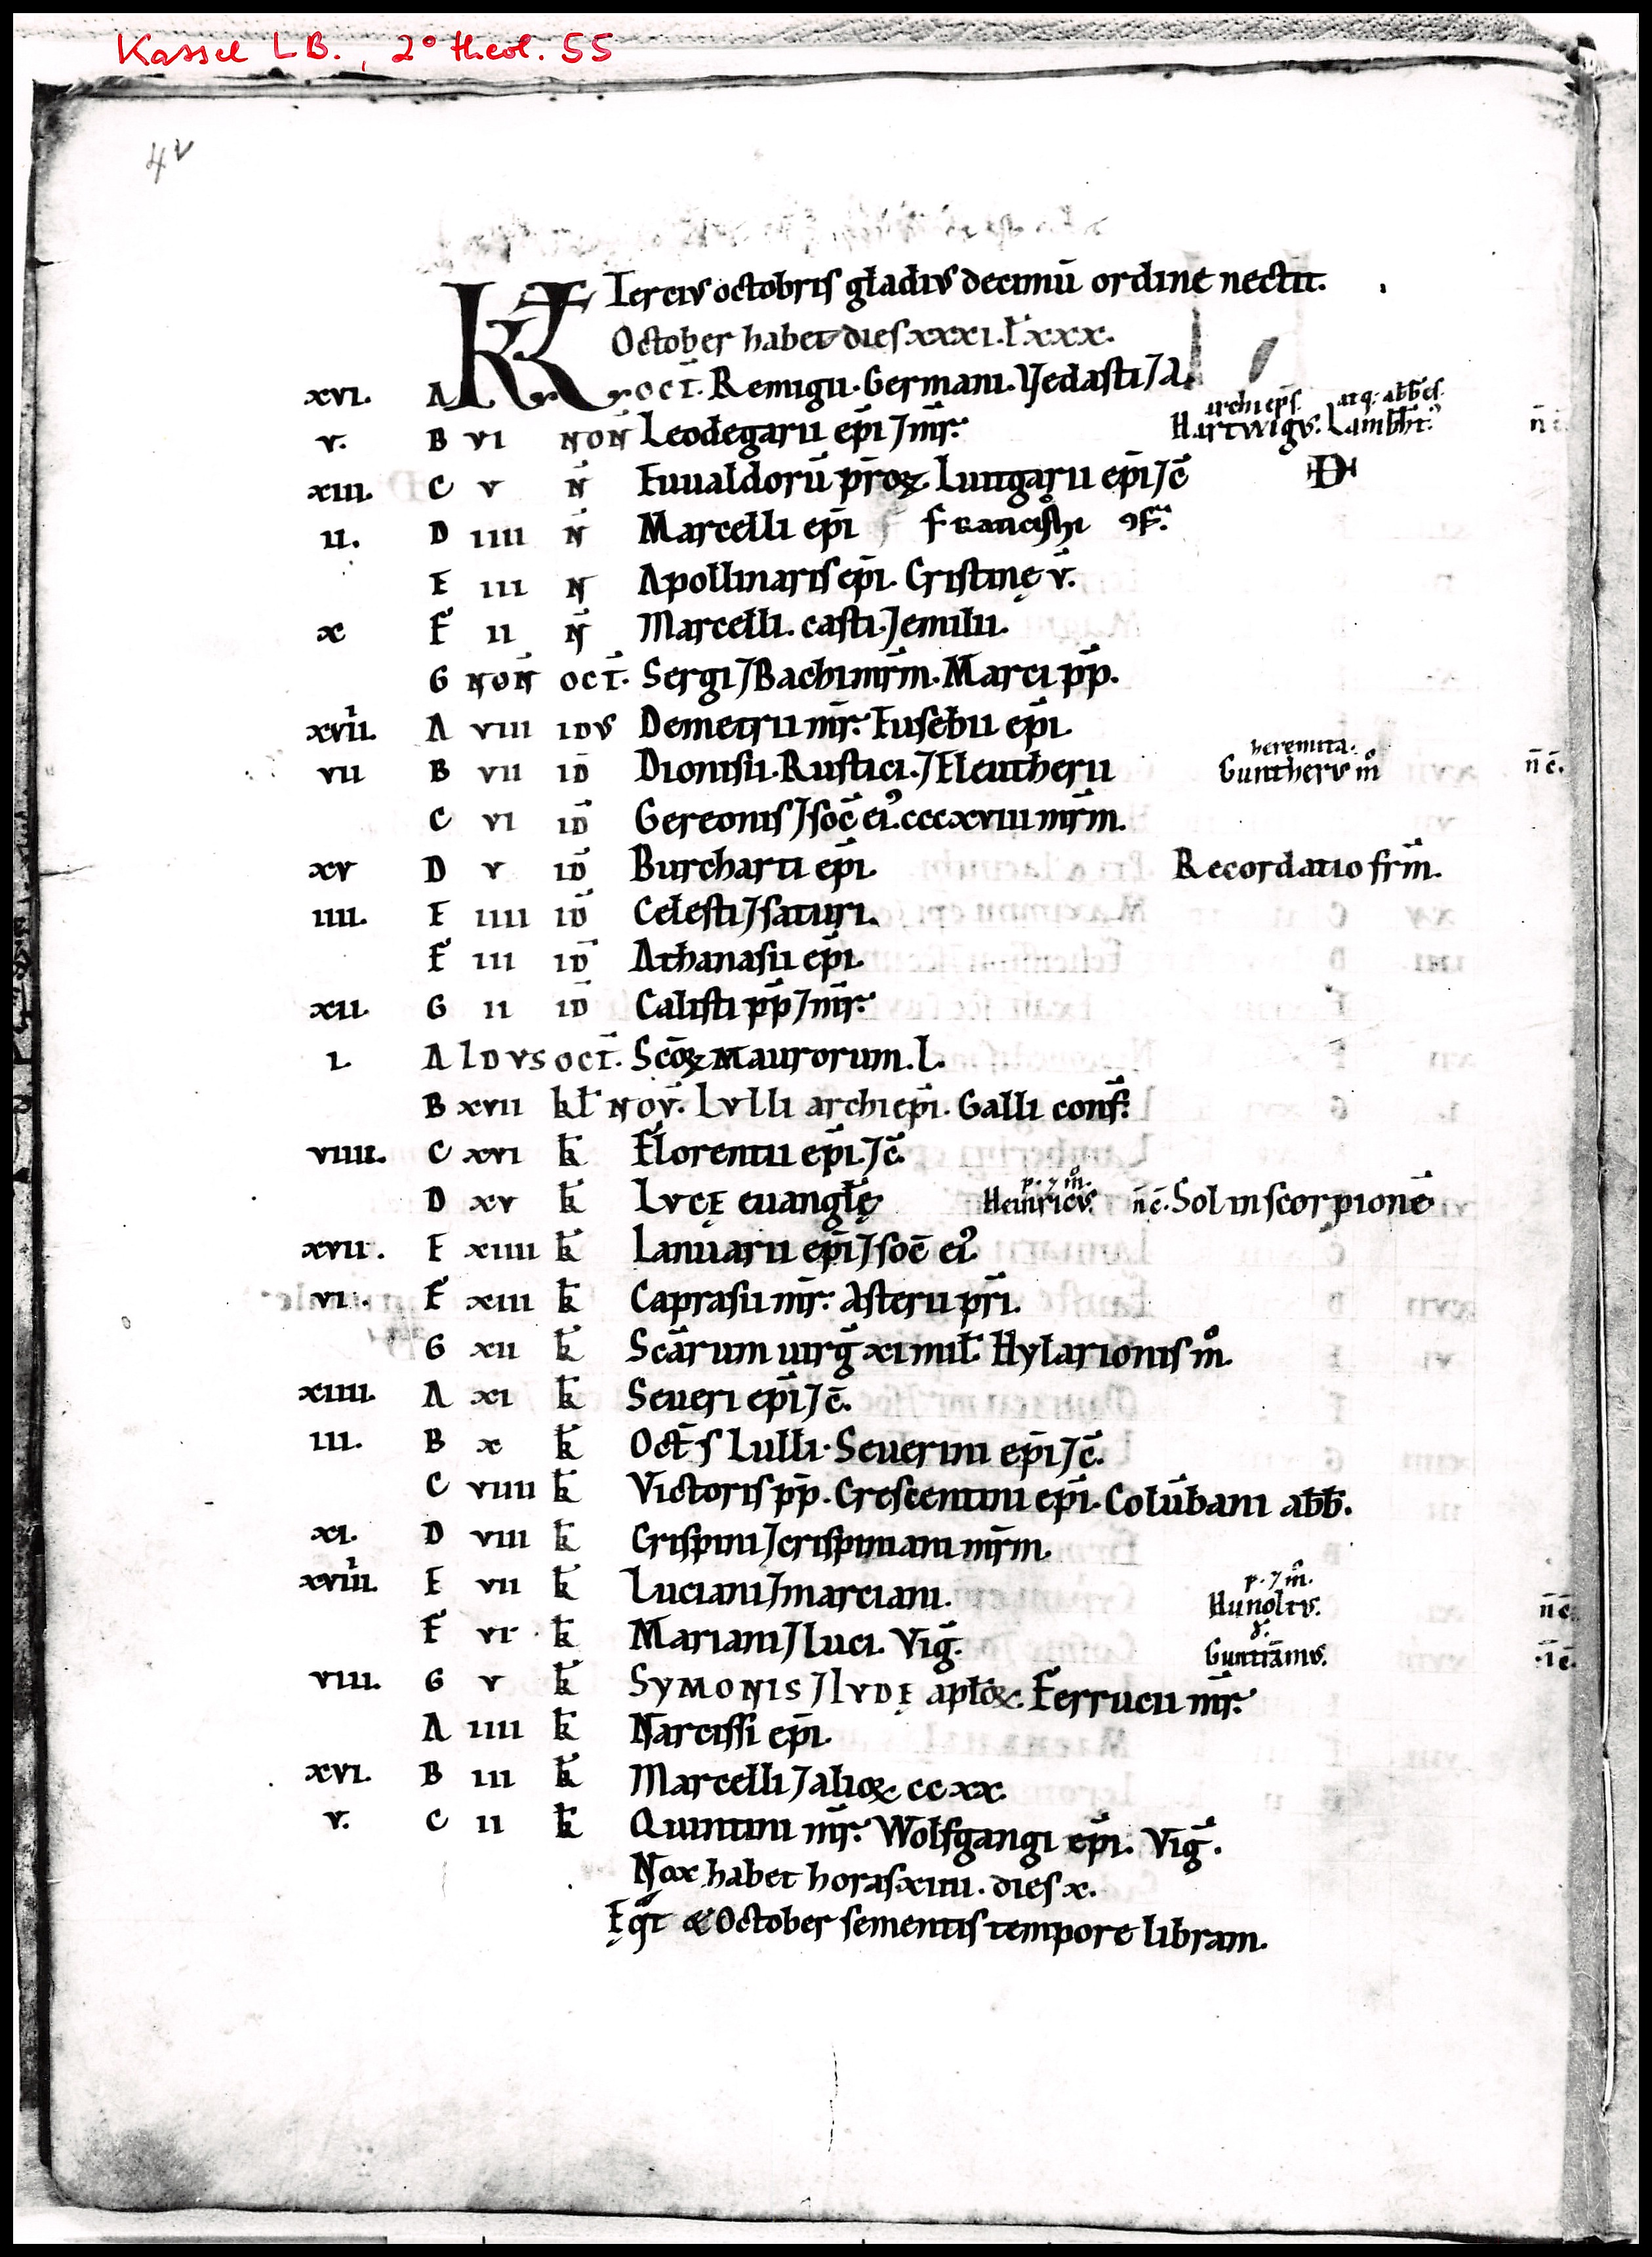 Kassel LB., 2° theol. 55
4v
Tercius octobris gladius decimū ordine nectit.
October habet dies xxxi. l᷑ xxx.
xvi. A KL oct̄. Remigii. Germani. Vedasti ⁊ A.
archieps̄. atq; abb̄es.
v. B vi non̄ Leodegarii ep̄i ⁊ mr̄. Hartwigus. Lamb̄ht. n̄
xiii. C v n̄ Euualdorū p̄roꝝ. Luitgarii ep̄i ⁊ c̄ D
ii. D iiii n̄ Marcelli ep̄i Francisci ꝯf.
E iii n̄ Apollinaris ep̄i. Cristinę v̄.
x F ii n̄ Marcelli. casti. ⁊ emilii.
G non̄ oct̄. Sergi ⁊ Bachi mr̄m. Marci pp̄.
xviii. A viii idus Demetrii mr̄. Eusebii ep̄i.
heremita.
vii B vii id̄ Dionisii. Rustici. ⁊ Eleutherii Guntherus m̊ n̄ c̄.
C vi id̄ Gereonis ⁊ soc̄ ei᷒. cccxviii mr̄m.
xv D v id̄ Burcharti ep̄i. Recordatio fr̄m.
iiii. E iiii id̄ Celesti ⁊ saturi.
F iii id̄ Athanasii ep̄i.
xii. G ii id̄ Calisti pp̄ ⁊ mr̄.
i. A Idus oct̄. Scōꝝ Maurorum. L.
B xvii kl̄ nov̄. Lulli archiep̄i. Galli conf̄.
viiii. C xvi k̄ Florentii ep̄i. ⁊ c̄.
p. ⁊ m̊.
D xv k̄ Lucę euangl̄ę Heinricus. n̄ c̄. Sol in scorpionē
xvii. E xiiii k̄ Ianuarii ep̄i ⁊ soc̄ ei᷒.
vi. F xiii k̄ Caprasii mr̄. Asterii p̄ri.
G xii k̄ Scārum uirḡ xi mil̄. Hylarionis m̊.
xiiii. A xi k̄ Seueri ep̄i ⁊ c̄.
iii. B x k̄ Oct̄ s̄ Lulli. Seuerini ep̄i ⁊ c̄.
C viiii k̄ Victoris pp̄. Crescentini ep̄i. Colūbani abb̄.
xi. D viii k̄ Crispini ⁊ crispiniani mr̄m.
p. ⁊ m̊.
xviiii. E vii k̄ Luciani ⁊ marciani. Hunoltus. n̄ c̄
F vi k̄ Mariani ⁊ luci. Vig̅. Guntrāmus. n̄ c̄.
viii. G v k̄ Symonis ⁊ Iudę apl̄oꝝ. Ferrucii mr̄.
A iiii k̄ Narcissi ep̄i.
xvi. B iii k̄ Marcelli ⁊ alioꝝ ccxx.
v. C ii k̄ Quintini mr̄. Wolfgangi ep̄i. Vig̅.
Nox habet horas xiiii. dies x.
Ęq̄t & October sementis tempore libram.